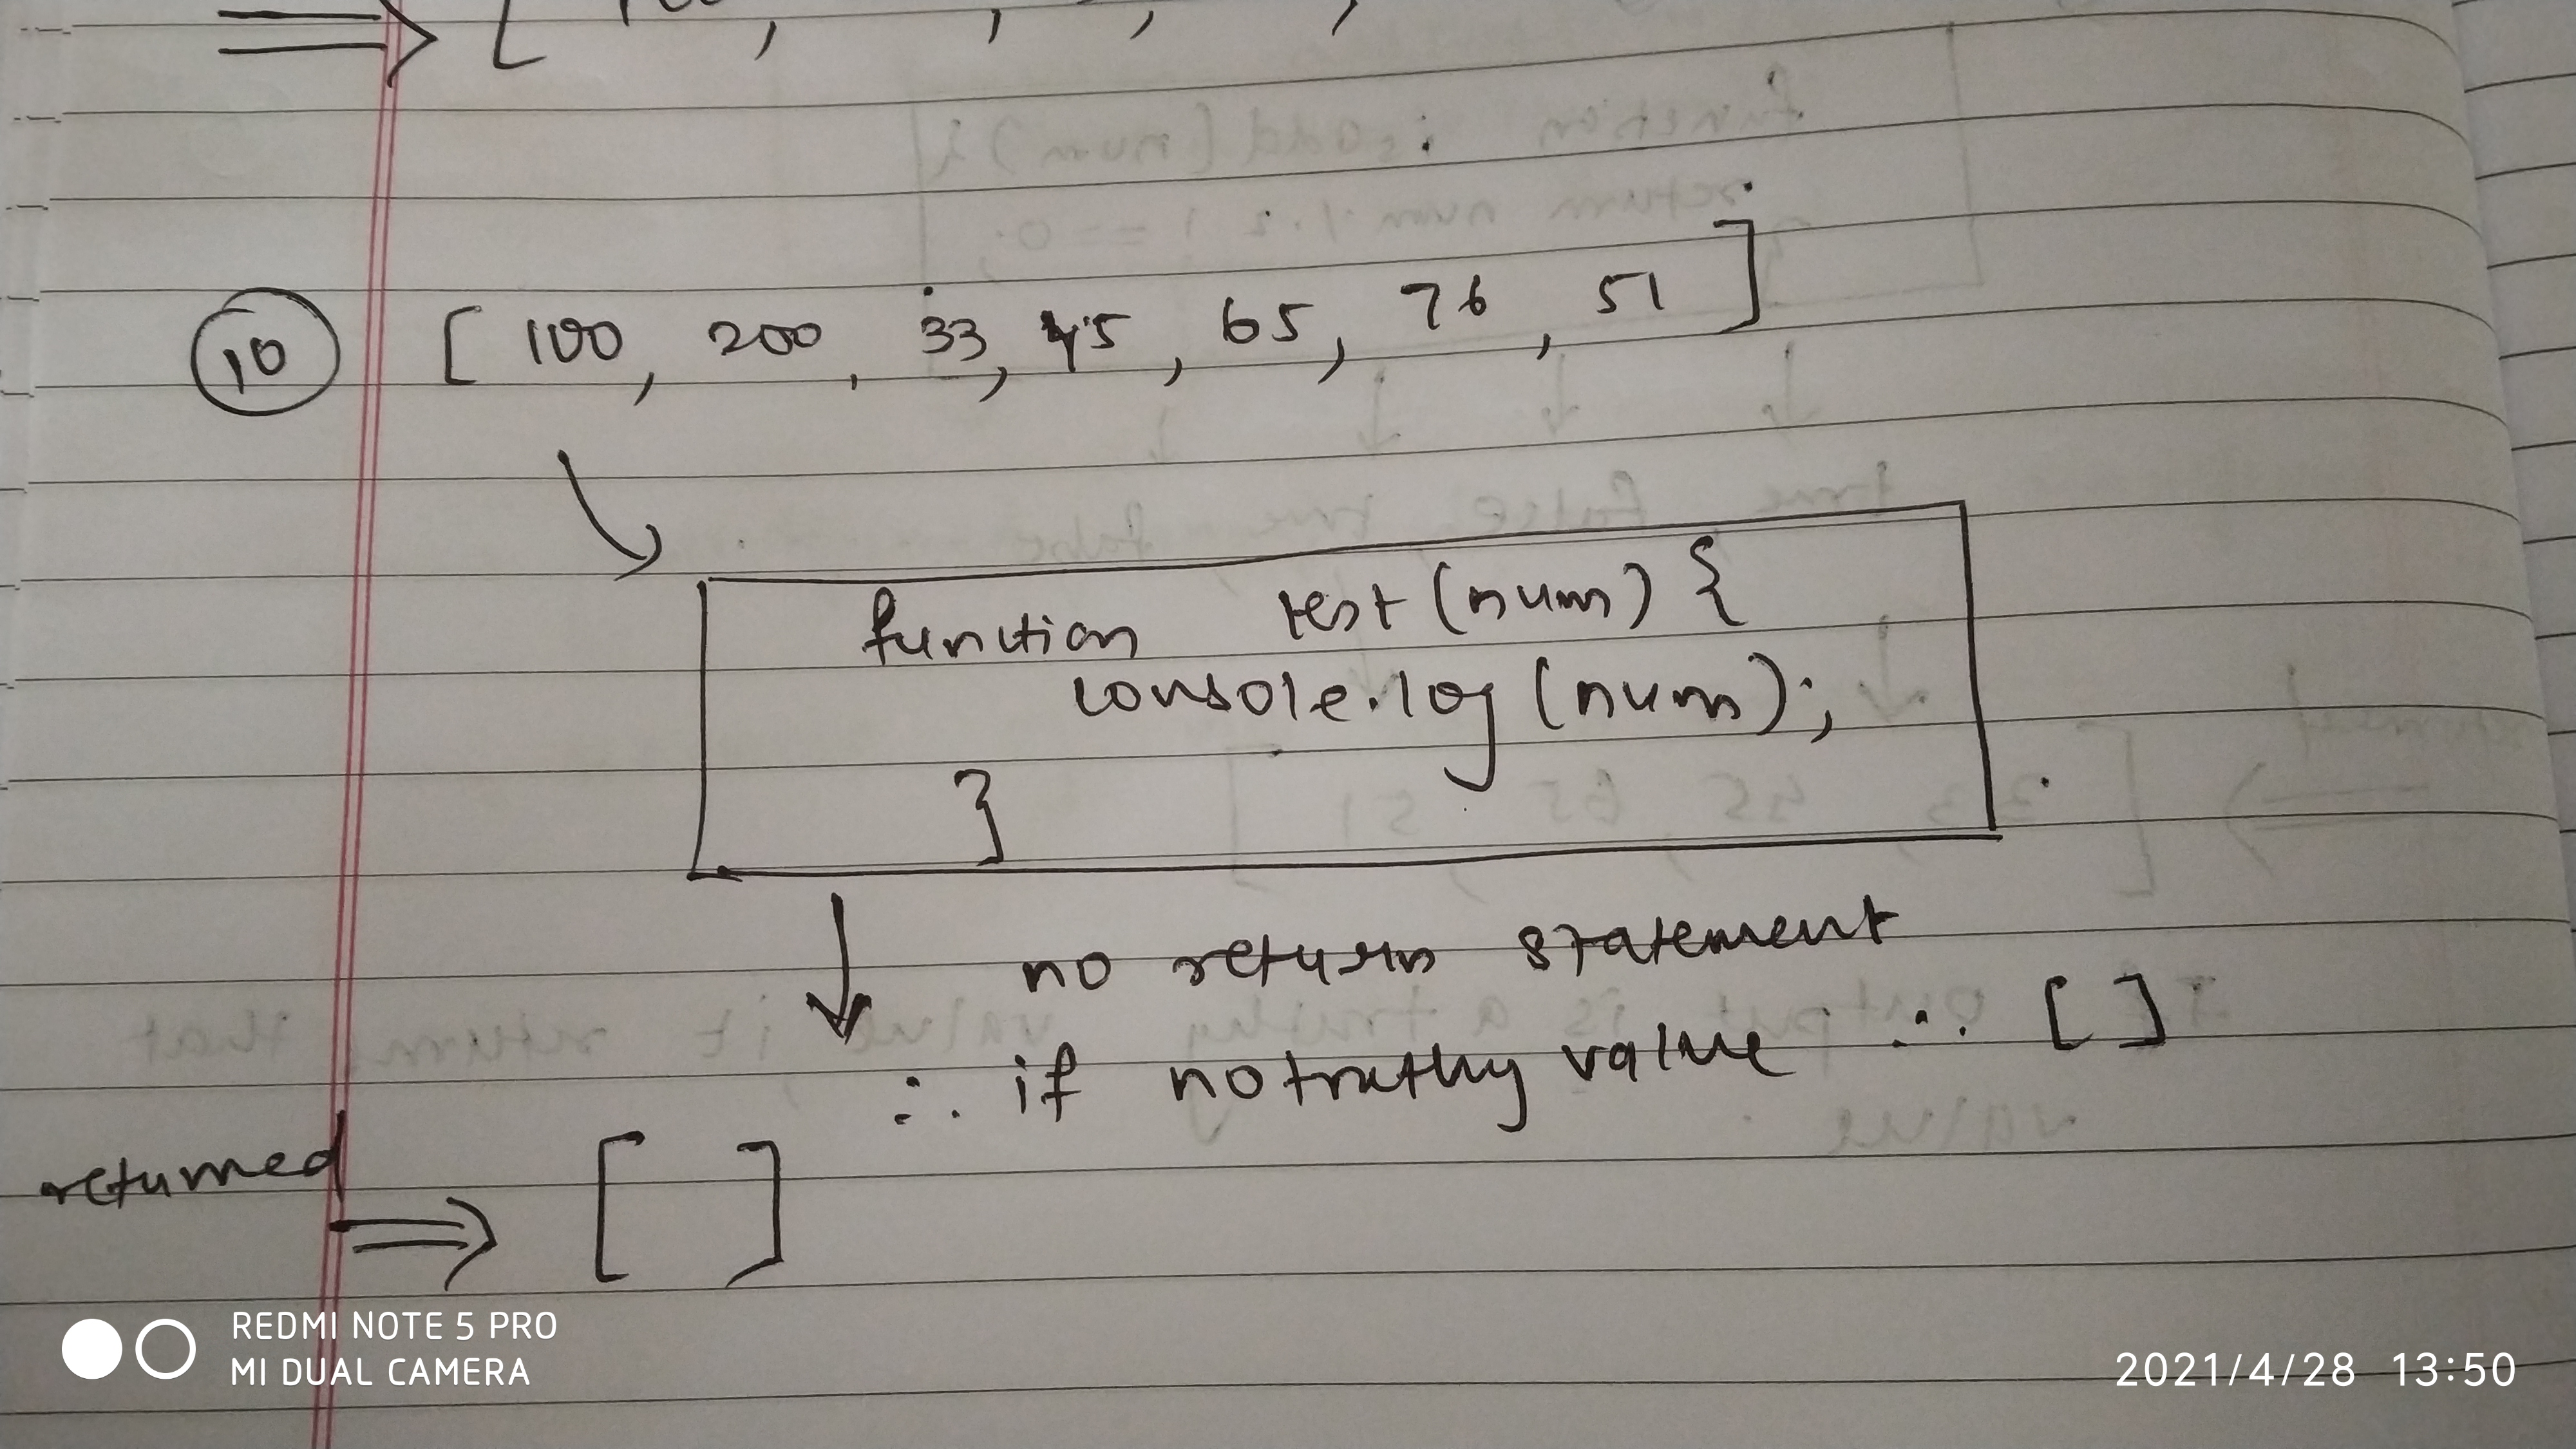 ⑩ [ 100, 200, 33, 45, 65, 76, 51 ]
function test(num) {
console.log(num);
}
no return statement
∴ if no truthy value ∴ [ ]
returned
⇒ [ ]
REDMI NOTE 5 PRO
MI DUAL CAMERA
2021/4/28 13:50